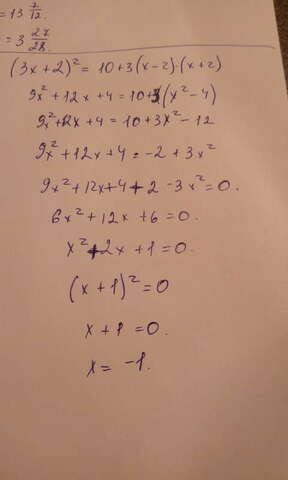 = 13 7/12.
= 3 27/28
(3x+2)² = 10+3(x-2)·(x+2)
9x²+12x+4=10+3(x²-4)
9x²+12x+4=10+3x²-12
9x²+12x+4=-2+3x²
9x²+12x+4+2-3x²=0.
6x²+12x+6=0.
x²+2x+1=0.
(x+1)²=0
x+1=0.
x=-1.